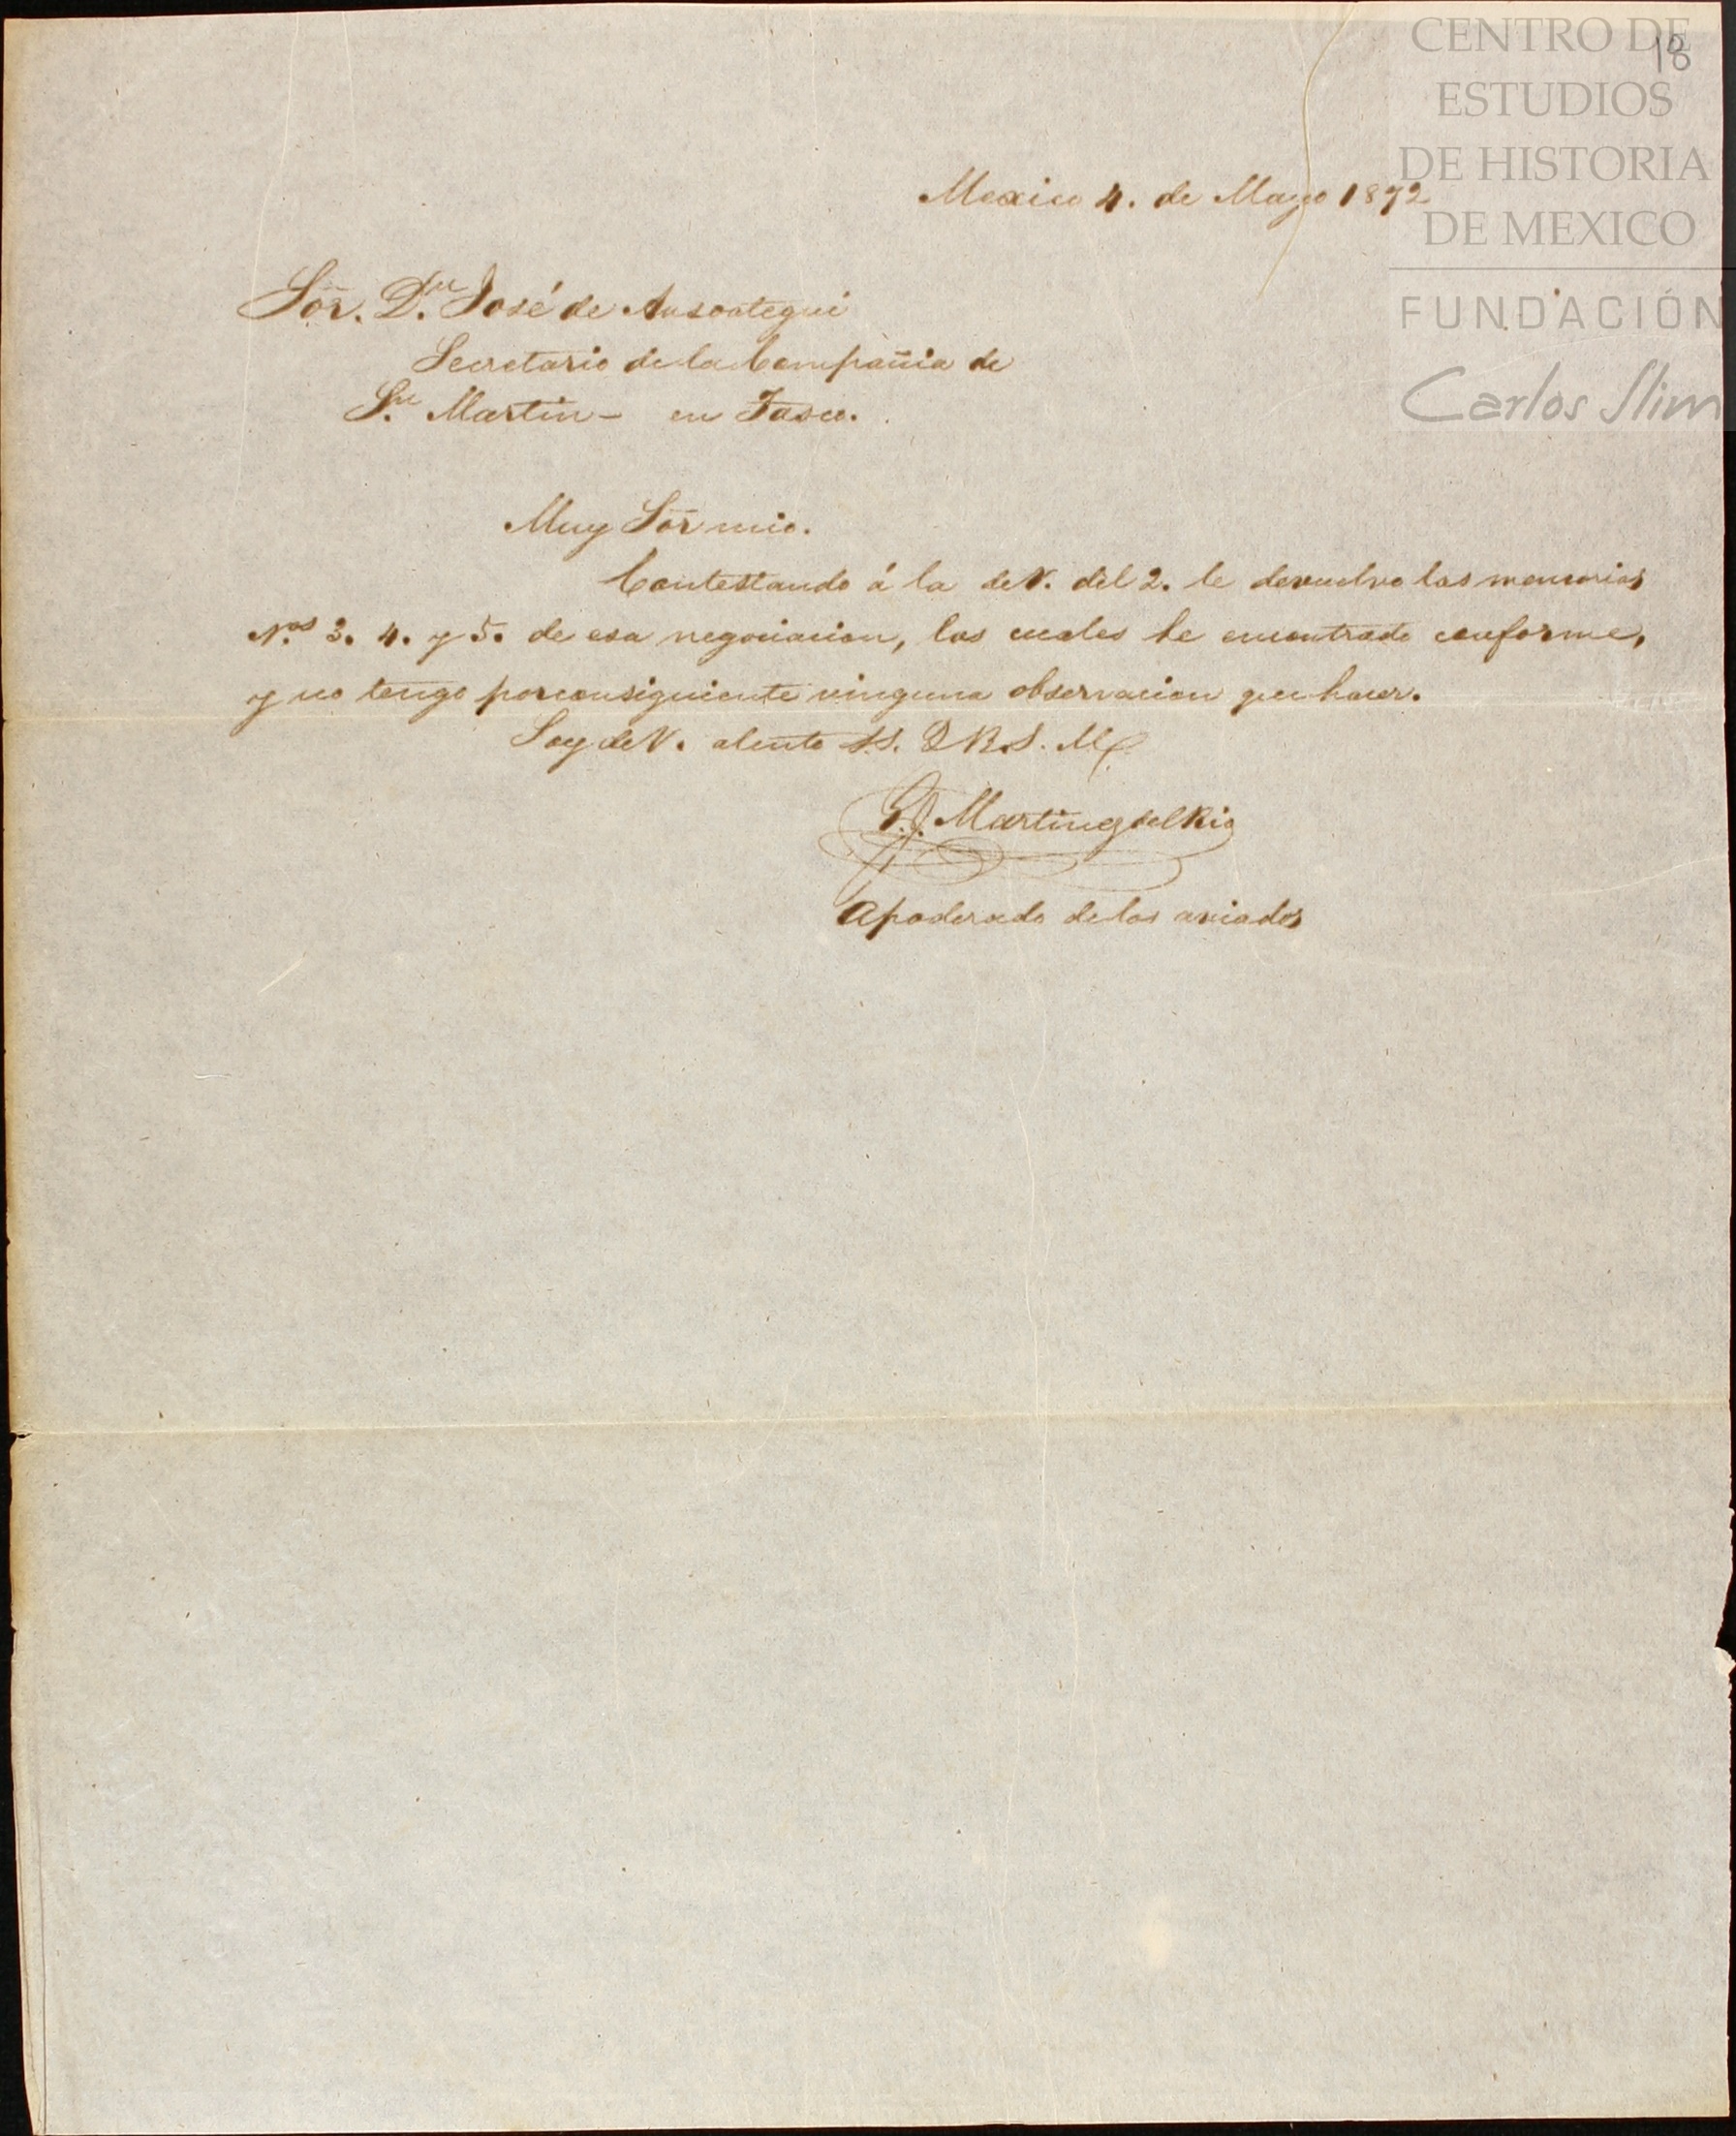 18
CENTRO DE
ESTUDIOS
DE HISTORIA
DE MEXICO
FUNDACIÓN
Carlos Slim
Mexico 4. de Mayo 1872
Sor. Dn. José de Ansoategui
Secretario de la Compañia de
Sn. Martin - en Tasco.
Muy Sor mio.
Contestando á la de V. del 2. le devuelvo las memorias
Nos. 3. 4. y 5. de esa negociacion, las cuales he encontrado conforme,
y no tengo por consiguiente ninguna observacion que hacer.
Soy de V. atento S.S. Q B. S. M.
Martinez del Rio
Apoderado de los aviados